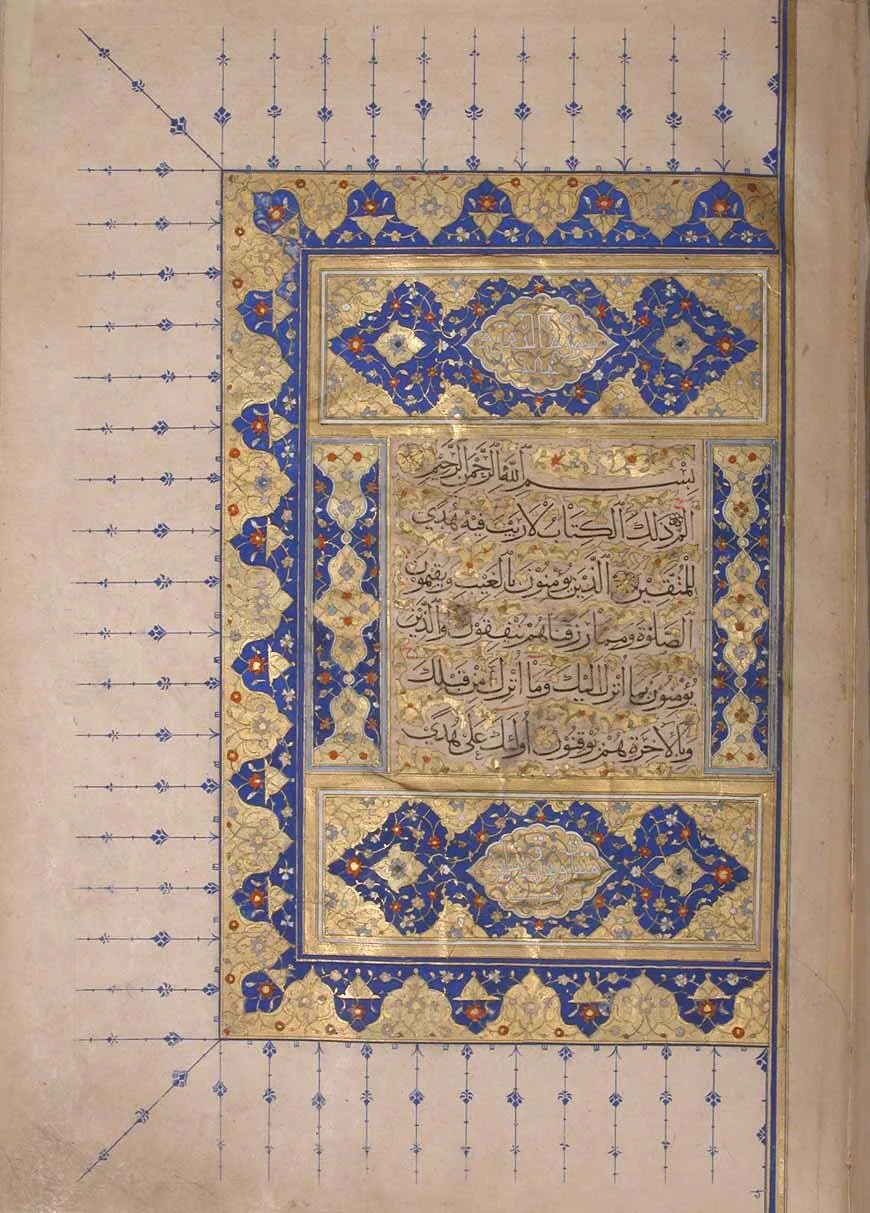 سورة البقرة
بِسْمِ ٱللَّهِ ٱلرَّحْمٰنِ ٱلرَّحِيمِ
الم ذلِكَ الْكِتَابُ لَا رَيْبَ فِيهِ هُدًى
لِلْمُتَّقِينَ الَّذِينَ يُؤْمِنُونَ بِالْغَيْبِ وَيُقِيمُونَ
الصَّلٰوةَ وَمِمَّا رَزَقْنَاهُمْ يُنْفِقُونَ وَالَّذِينَ
يُؤْمِنُونَ بِمَا أُنْزِلَ إِلَيْكَ وَمَا أُنْزِلَ مِنْ قَبْلِكَ
وَبِالْآخِرَةِ هُمْ يُوقِنُونَ أُولٰئِكَ عَلَى هُدًى